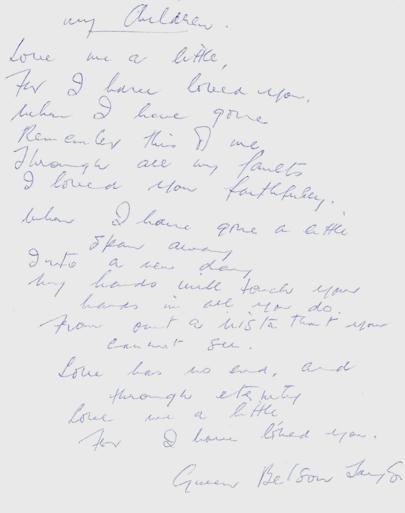 my Children.
Love me a little,
For I have loved you.
When I have gone
Remember this of me,
Through all my faults
I loved you faithfully.
When I have gone a little
span away
Into a new day
My hands will touch your
hands in all you do.
From out a vista that you
cannot see.
Love has no end, and
through eternity
Love me a little
For I have loved you.
Gwen Belson Taylor